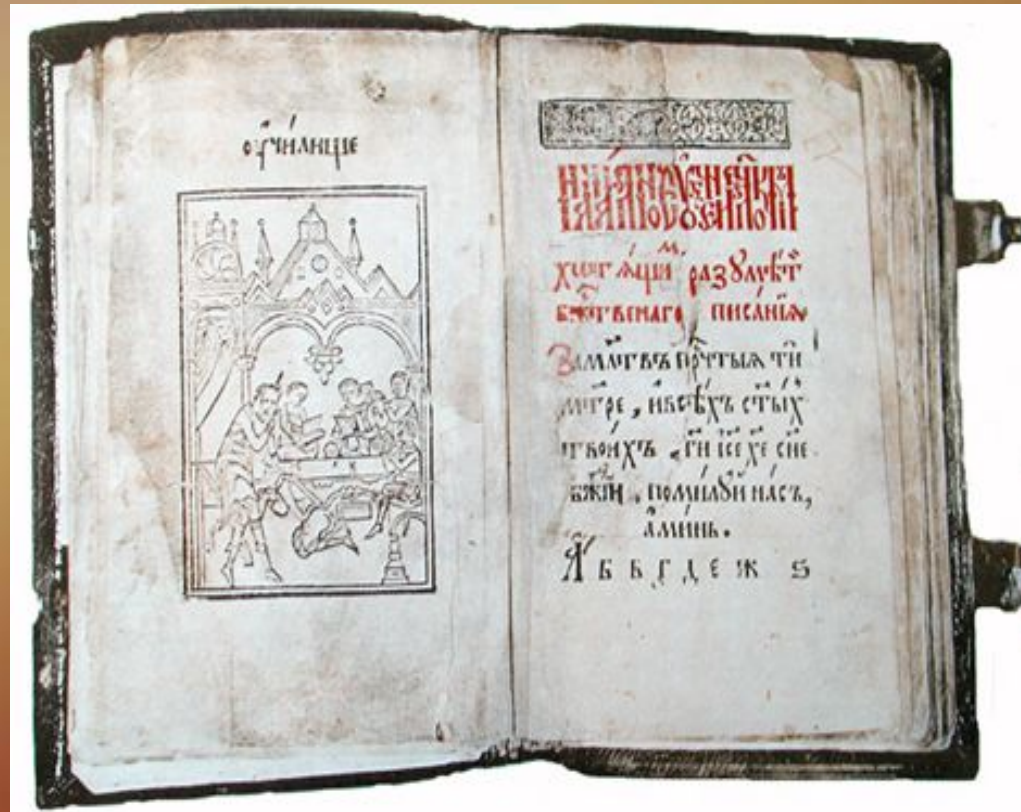 оу҆чи́лище
хотѧ́щиⷨ разꙋмѣ́тⷤи
бж҃твенаго писа́нїѧ
За мл҃твъ пр҃чтыѧ ти
мт҃ре, и҆ всѣ́хъ ст҃ы́хъ
твои́хъ, гд҃и і҆с҃е хе҃ сн҃е
бж҃їи, поми́лꙋй на́съ,
а҆ми́нь.
А҆ б в г д е ж ѕ